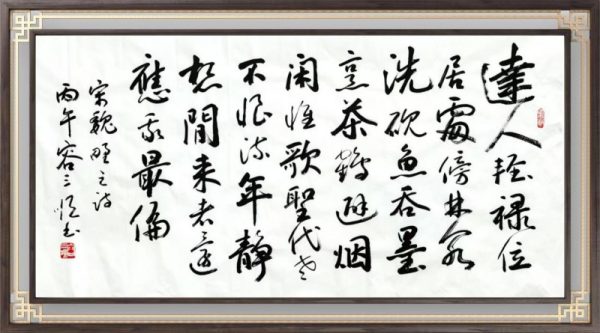 達人輕禄位
居處傍林泉
洗砚魚吞墨
烹茶鶴避烟
闲惟歌聖代老
不恨流年靜
想閒来者還
應我最偏
宋魏野之诗
丙午容三书